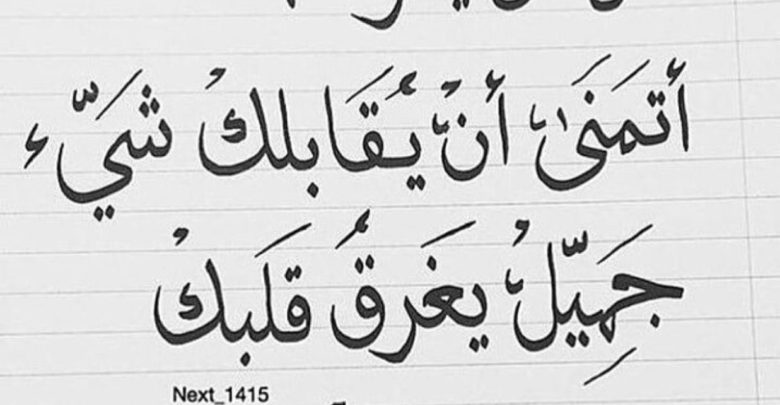 أتمَنَىٰ أنْ يُقَابلكْ شَيّء
جَمِيّلْ يَغَرقُ قلَبكْ
Next_1415